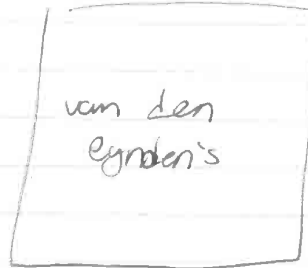 van den
Eynden's